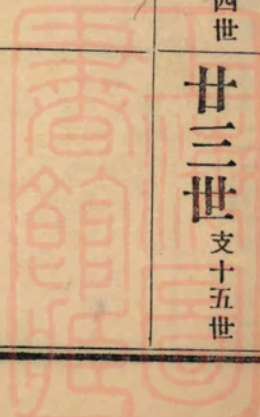 四世
廿三世 支十五世